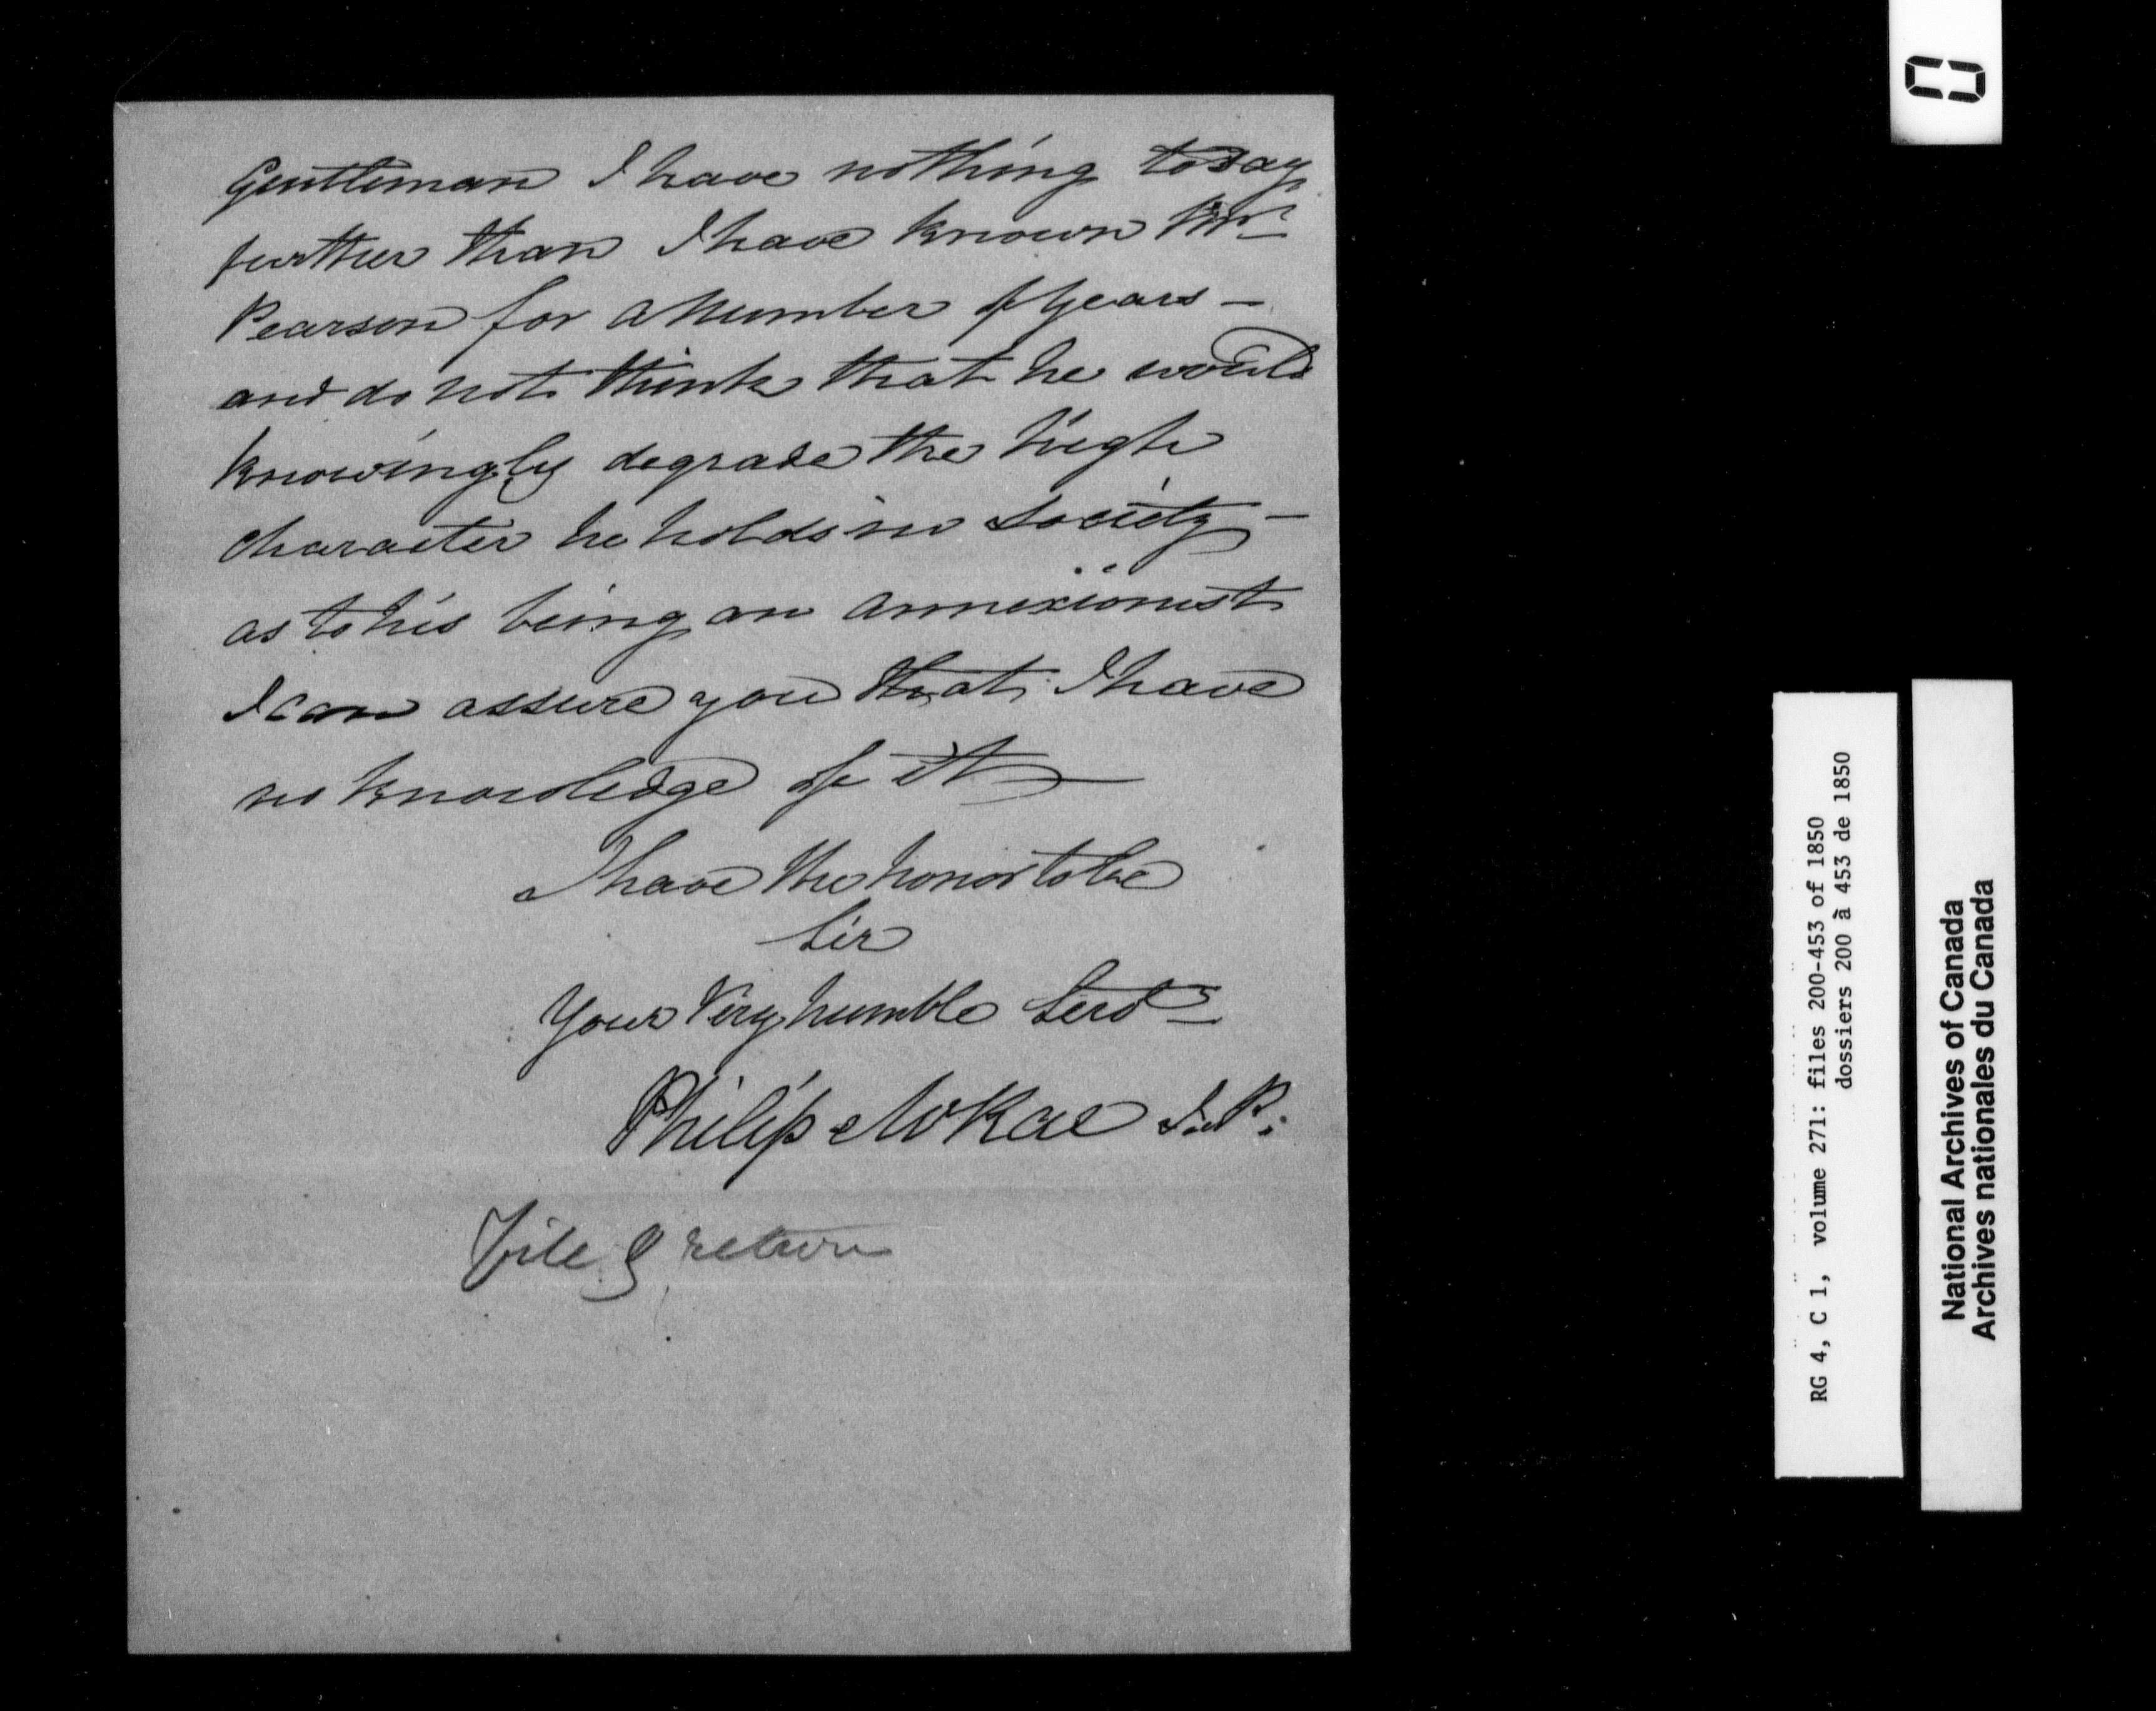 Gentleman I have nothing to say
further than I have known Mr
Pearson for a number of years —
and do not think that he would
knowingly degrade the high
character he holds in society —
as to his being an annexionist
I can assure you that I have
no knowledge of it
I have the honor to be
Sir
Your Very humble Servt
Philip McRae J.P.
File & return
RG 4, C 1, volume 271: files 200-453 of 1850
dossiers 200 à 453 de 1850
National Archives of Canada
Archives nationales du Canada